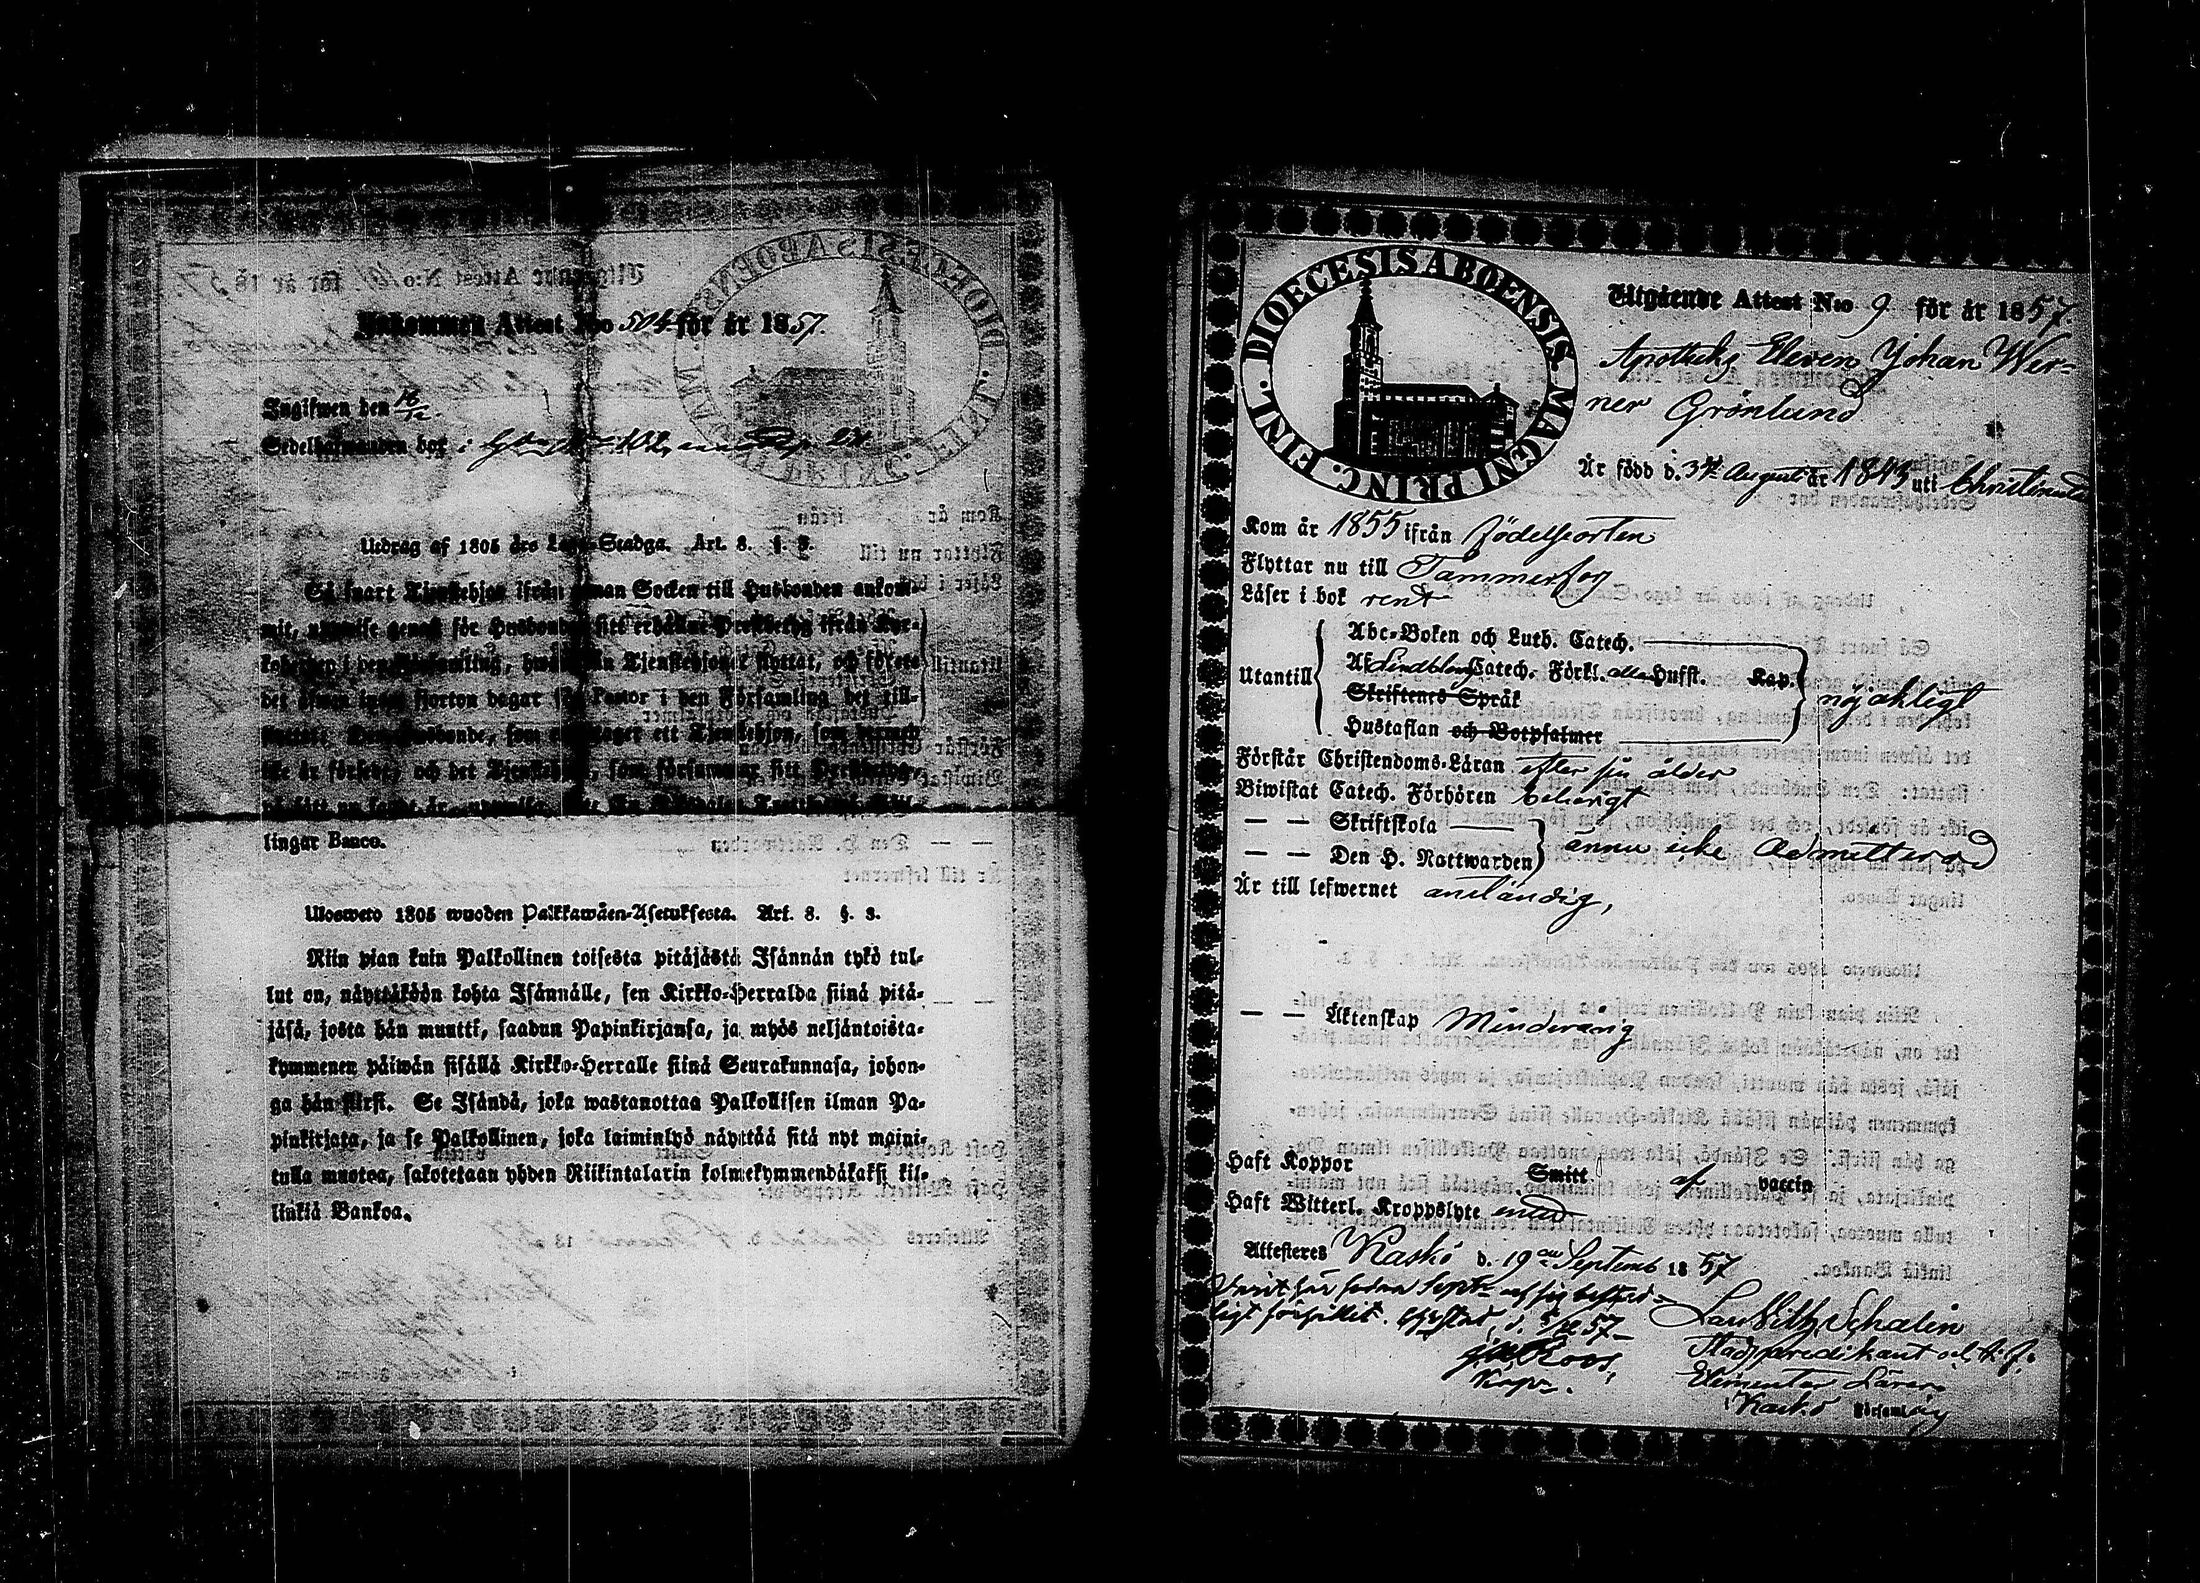 Inkommen Attest N:o 504 för år 1857.
Ingifwen den 16/12.
Sedelhafwanden bor i
Utdrag af 1805 års Lego-Stadga. Art. 8. §. 3.
Så snart Tjenstehjon ifrån annan Socken till Husbonden ankom-
mit, uppwise genast för Husbonden sitt erhållne Prestbetyg ifrån Kyr-
koherden i den Församling, hwarifrån Tjenstehjonet flyttat, och förete
det äfwen inom fjorton dagar för Pastor i den Församling det till-
flyttat: Den Husbonde, som emottager ett Tjenstehjon, som dermed
icke är försedt, och det Tjenstehjon, som försummar sitt Prestbetyg
på sätt nu sagdt är,
lingar Banco.
Uloswето 1805 wuoden Palkkawäen-Asetuksesta. Art. 8. §. 3.
Niin pian kuin Palkollinen toisesta pitäjästä Isännän tykö tul-
lut on, näyttäköön kohta Isännälle, sen Kirkko-Herralda siinä pitä-
jäsä, josta hän muutti, saadun Papinkirjansa, ja myös neljäntoista-
kymmenen päiwän sisällä Kirkko-Herralle siinä Seurakunnasa, johon-
ga hän siirsi. Se Isändä, joka wastanottaa Palkollisen ilman Pa-
pinkirjata, ja se Palkollinen, joka laiminlyö näyttää sitä nyt maini-
tulla muotoa, sakotetaan yhden Riikintalarin kolmekymmendäkaksi kil-
linkiä Bankoa.
DIOECESIS ABOENSIS. MAGNI PRINC. FINL.
Utgående Attest N:o 9 för år 1857.
Apotheks Eleven Johan Wer-
ner Grönlund
Är född d. 3de Augusti år 1843 uti Christinestad
Kom år 1855 ifrån födelseorten
Flyttar nu till Tammerfors
Läser i bok rent
Utantill
Abc-Boken och Luth. Catech.
Af Lindbloms Catech. Förkl. alla Hufst. Kap.
Skriftenes Språk
Hustaflan och Botpsalmer
nöjaktigt
Förstår Christendoms-Läran efter sin ålder
Biwistat Catech. Förhören behörigt
— — Skriftskola
— — Den H. Nattwarden
ännu icke admitterad
Är till lefwernet anständig,
— — Äktenskap Minderårig
Haft Koppor Smitt af vaccin
Haft Witterl. Kroppslyte intet
Attesteres Kaskö d. 19de Septemb 1857
Varit här sedan Sept. och sig bestad-
ligt förhållit. d. 57
Roos,
Kapn.
Lars Wilh. Schalin
Stadspredikant och t. f.
Elementar Lärare
i Kaskö Församling